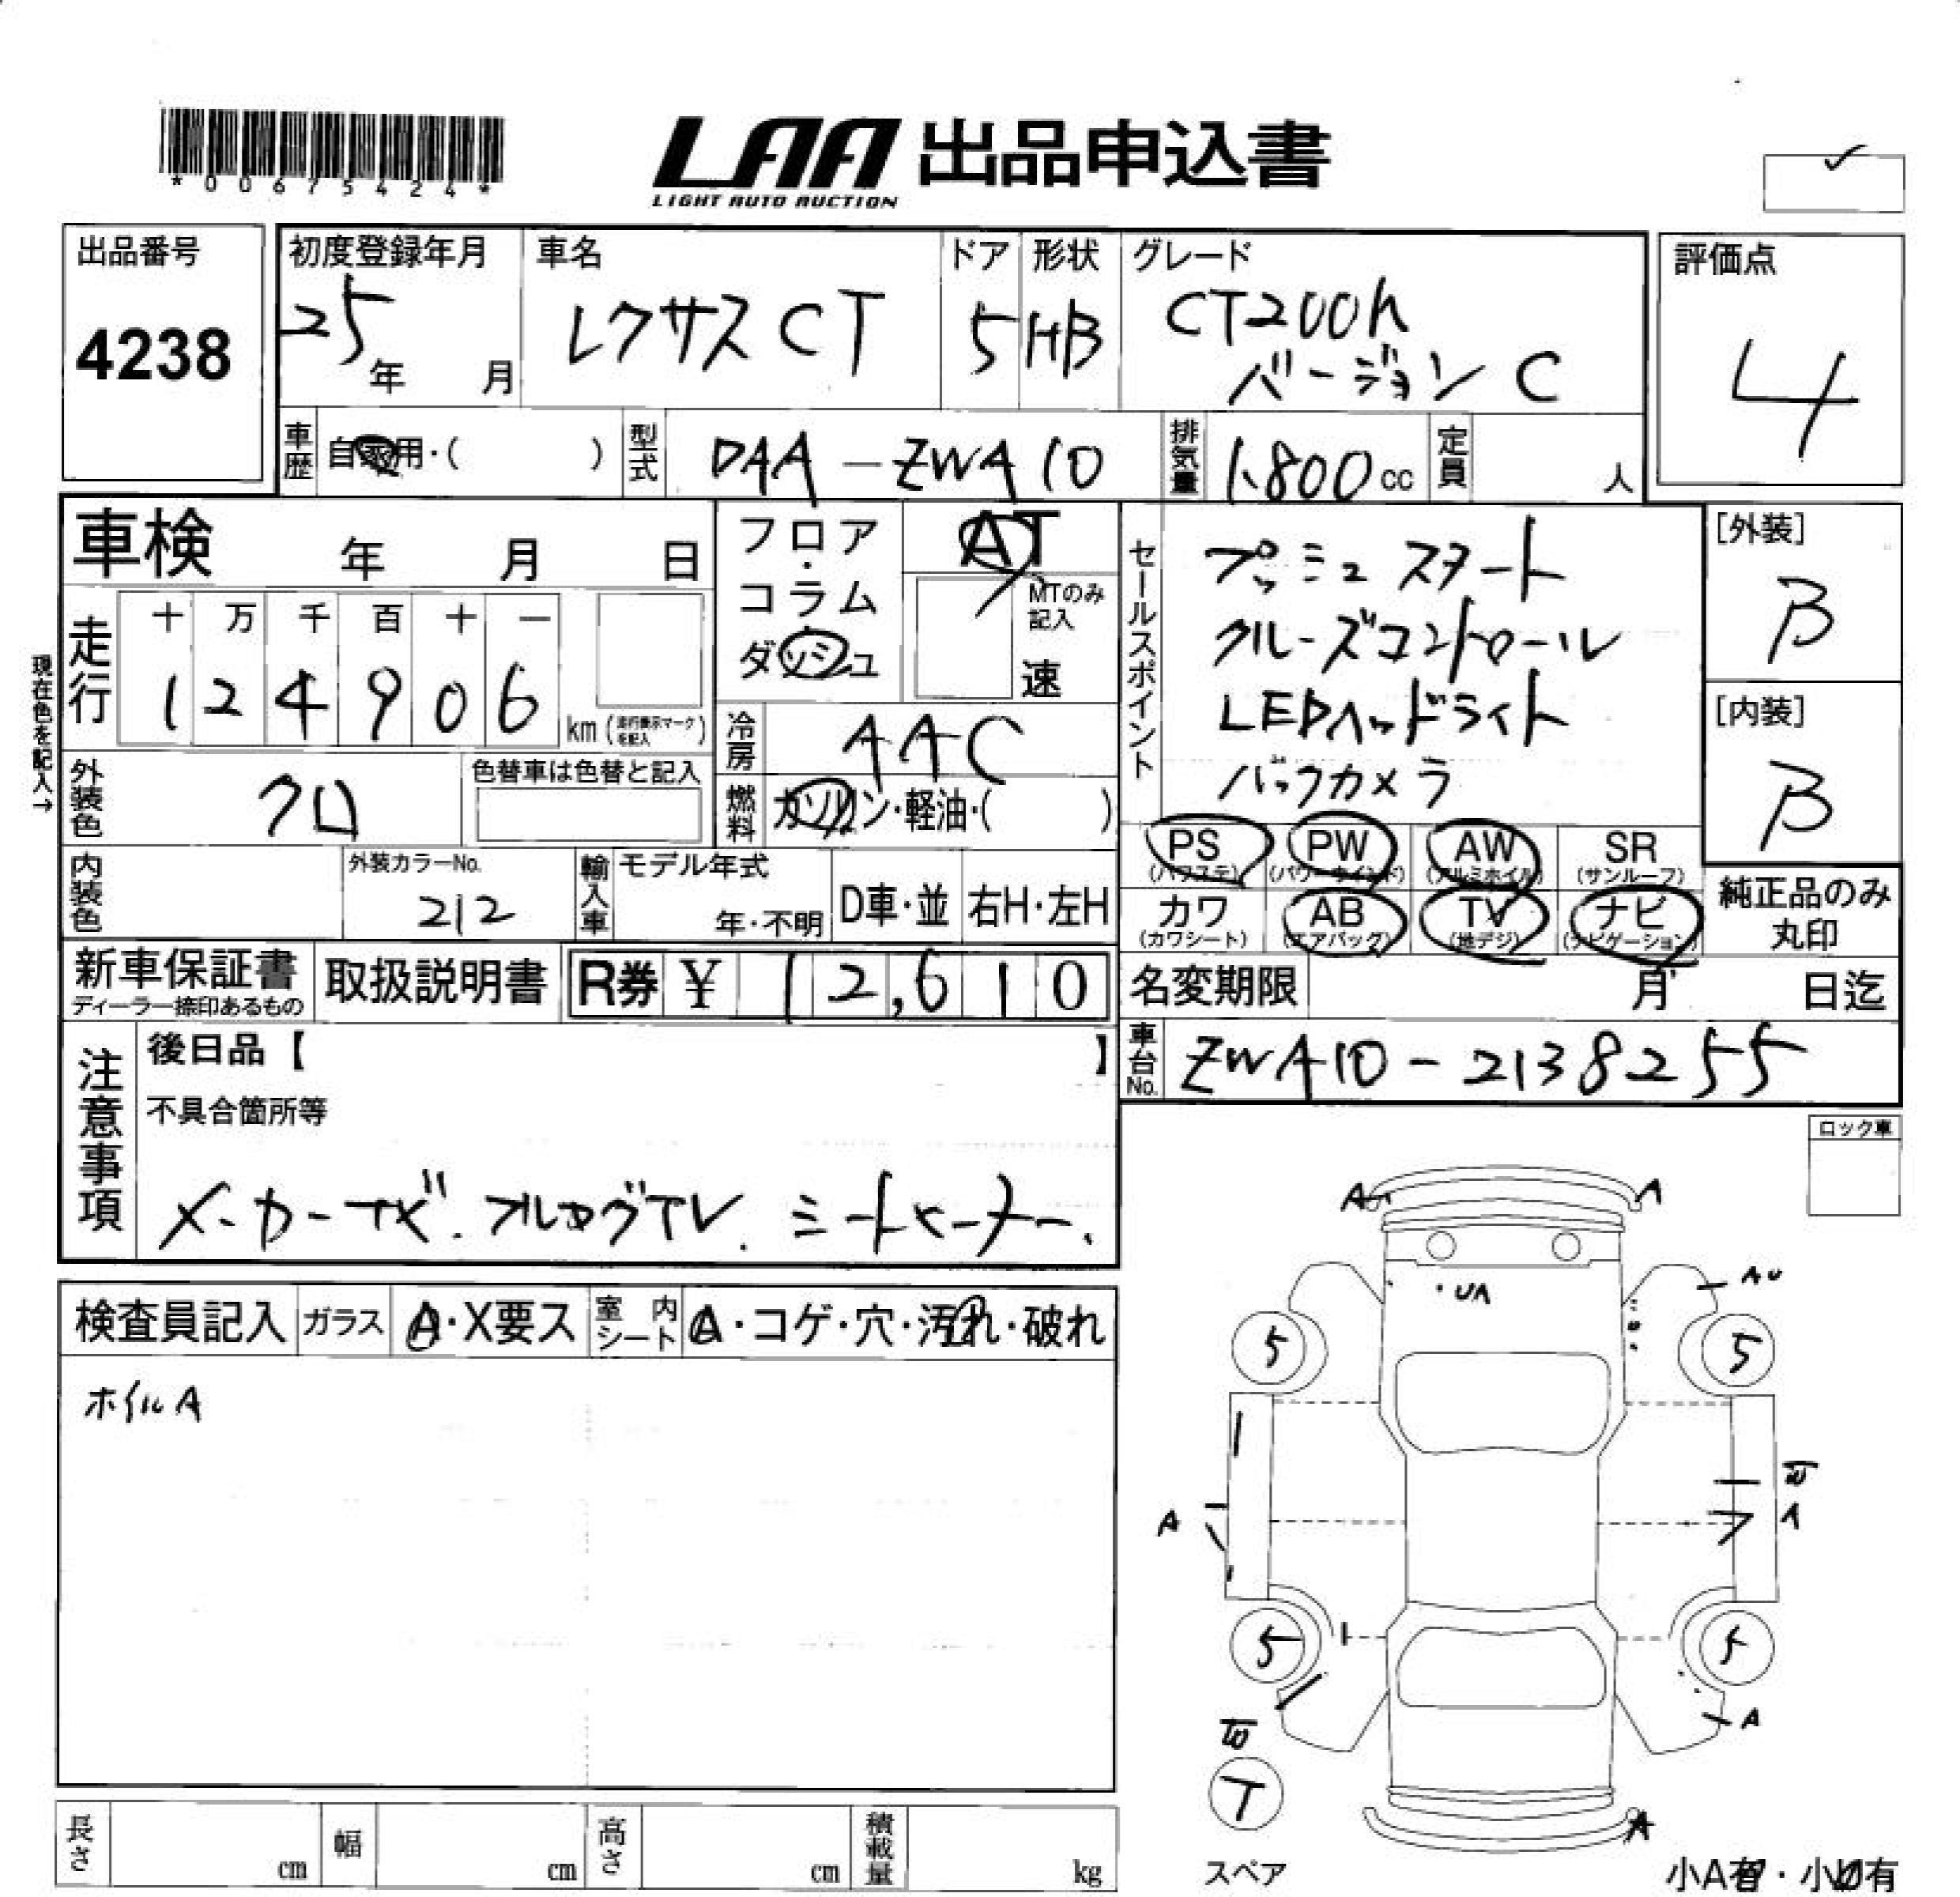 *00675424*
LAA 出品申込書
LIGHT AUTO AUCTION
出品番号
4238
初度登録年月
25年 月
車名
レクサスCT
ドア
5
形状
HB
グレード
CT200h
バージョンC
評価点
4
車歴
自家用・( )
型式
DAA-ZWA10
排気量
1,800cc
定員
人
車検 年 月 日
フロア・コラム
ダッシュ
AT
MTのみ記入
速
走行
十 万 千 百 十 一
1 2 4 9 0 6 km (走行表示マークを記入)
現在色を記入→
冷房
AAC
燃料
ガソリン・軽油・( )
外装色
クロ
色替車は色替と記入
内装色
外装カラーNo.
212
輸入車
モデル年式
年・不明
D車・並
右H・左H
セールスポイント
プッシュスタート
クルーズコントロール
LEDヘッドライト
バックカメラ
[外装]
B
[内装]
B
PS (パワステ)
PW (パワーウインド)
AW (アルミホイル)
SR (サンルーフ)
カワ (カワシート)
AB (エアバッグ)
TV (地デジ)
ナビ (ナビゲーション)
純正品のみ丸印
新車保証書
ディーラー捺印あるもの
取扱説明書
R券 ¥ 12,610
名変期限 月 日迄
車台No.
ZWA10-2138255
注意事項
後日品【 】
不具合箇所等
メーカーナビ.フルセグTV.シートヒーター.
ロック車
検査員記入
ガラス
A・X要ス
室内シート
A・コゲ・穴・汚れ・破れ
ホイルA
A
A
・UA
5
5
A
5
5
A
T
A
スペア
小A有・小U有
長さ cm
幅 cm
高さ cm
積載量 kg